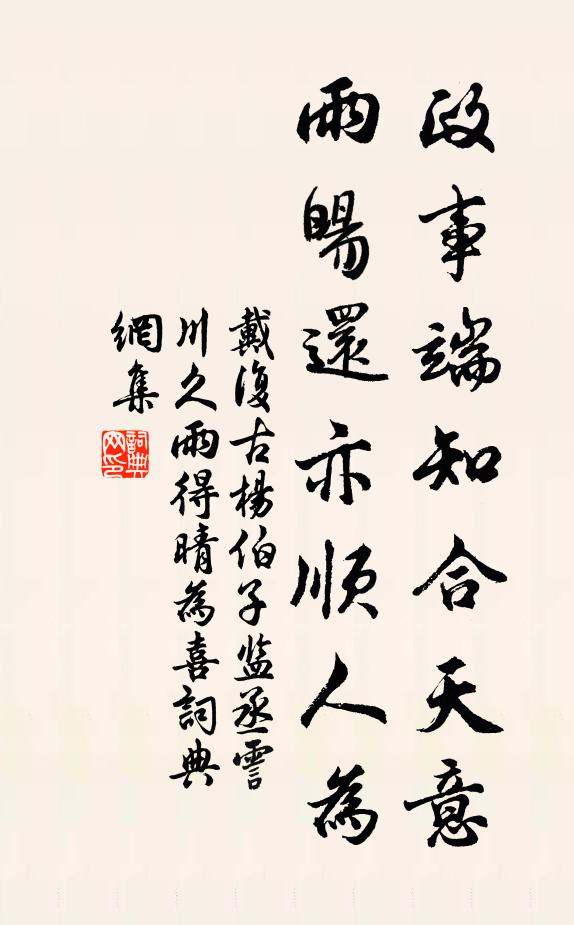 政事端知合天意
雨暘還亦順人為
戴復古楊伯子監丞霅
川久雨得晴為喜詞典
網集
詞典网印